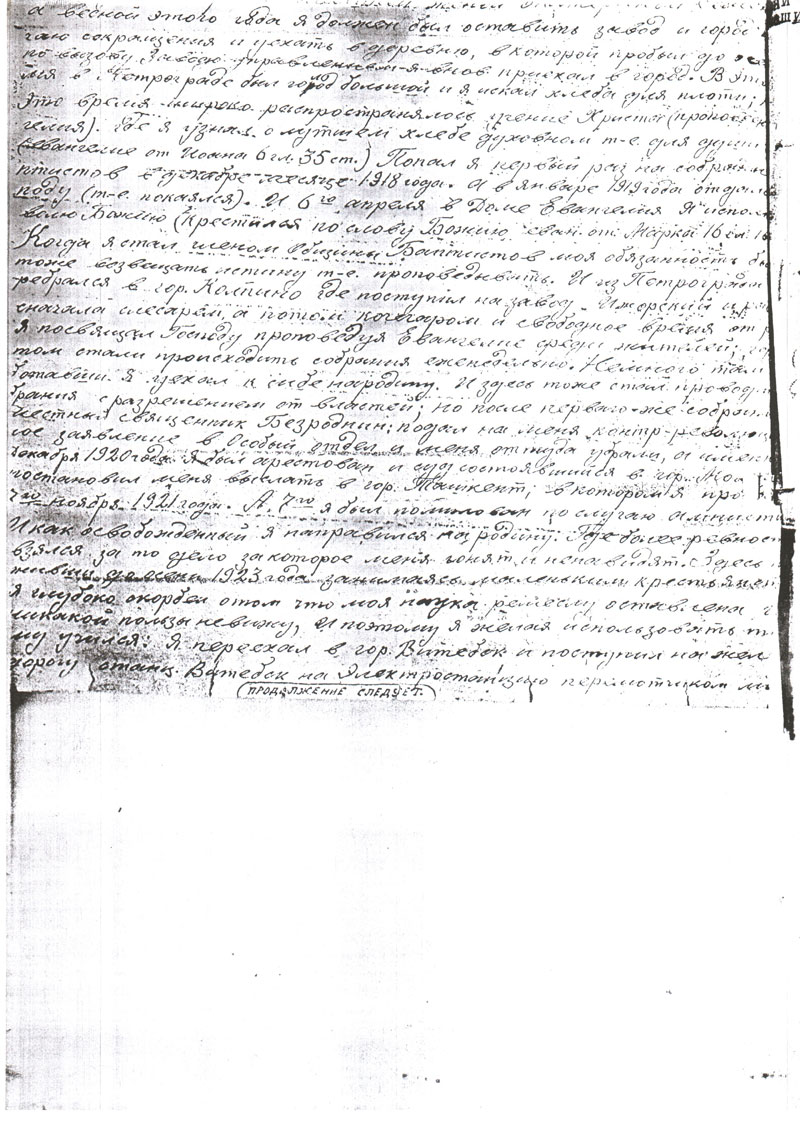 а весной этого года я должен был оставить завод и горо
чаю сокращения и уехать в деревню, в которой пробыл до
по вызову Заводоуправлением я вновь приехал в город. В эт
мя в Петрограде был голод большой и я искал хлеба для плоти;
Это время широко распространялось учение Христа (пропове
гелия). Где я узнал о лутшем хлебе духовном т-е. для души
(евангелие от Иоана 6 гл. 35 ст.) Попал я первый раз на собрани
птистов в декабре месяце 1918 года. А в январе 1919 года отдал
поду (т-е. покаялся). И 6го апреля в Доме Евангелия Я испол
волю Божию (крестилься по слову Божию еван. от Марка 16 гл. 16
Когда я стал членом Общины Баптистов моя обязанность бы
тоже возвещать истину т-е. проповедывать. И из Петроград
ребрался в гор. Колпино где поступил на завод Ижорский
сначала слесарем, а потом кочегаром и свободное время от р
Я посвящал Господу проповедуя Евангелие среди жителей;
том стали происходить собрания еженедельно. Немного там
ботавши. Я уехал к себе на родину. И здесь тоже стал провод
брания с разрешением от властей; но после перваго-же собрания
местный священник Безроднин: подал на меня контр-револю
ное заявление в Особый отдел и меня оттуда убрали, а имен
декабря 1920 года Я был арестован и суд состоявшийся в гор.
постановил меня выслать в гор. Ташкент, в котором я про
7го ноября 1921 года. А. 7го я был помилован по случаю амнисти
И как освобожденный я направился на родину. Где более ревност
взялся за то дело за которое меня гонят и ненавидят. Здесь
живши до осени 1923 года занимаясь маленьким крестьянст
я глубоко скорбел о том что моя наука ремеслу оставлена
никакой пользы невижу, И поэтому я желая использовать т
му учился: Я переехал в гор. Витебск и поступил на жел
дорогу станц. Витебск на Электростанцию
(ПРОДОЛЖЕНИЕ СЛЕДУЕТ.)